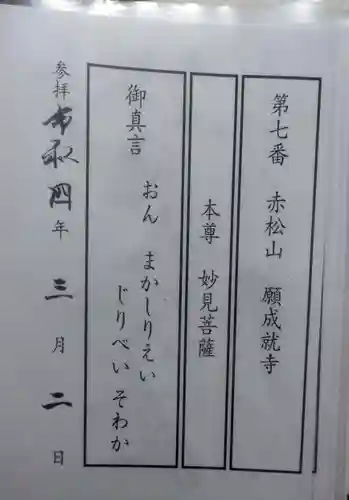 第七番 赤松山 願成就寺
本尊 妙見菩薩
御真言 おん まかしりえい
じりべい そわか
参拝 令和四年 三月 二日